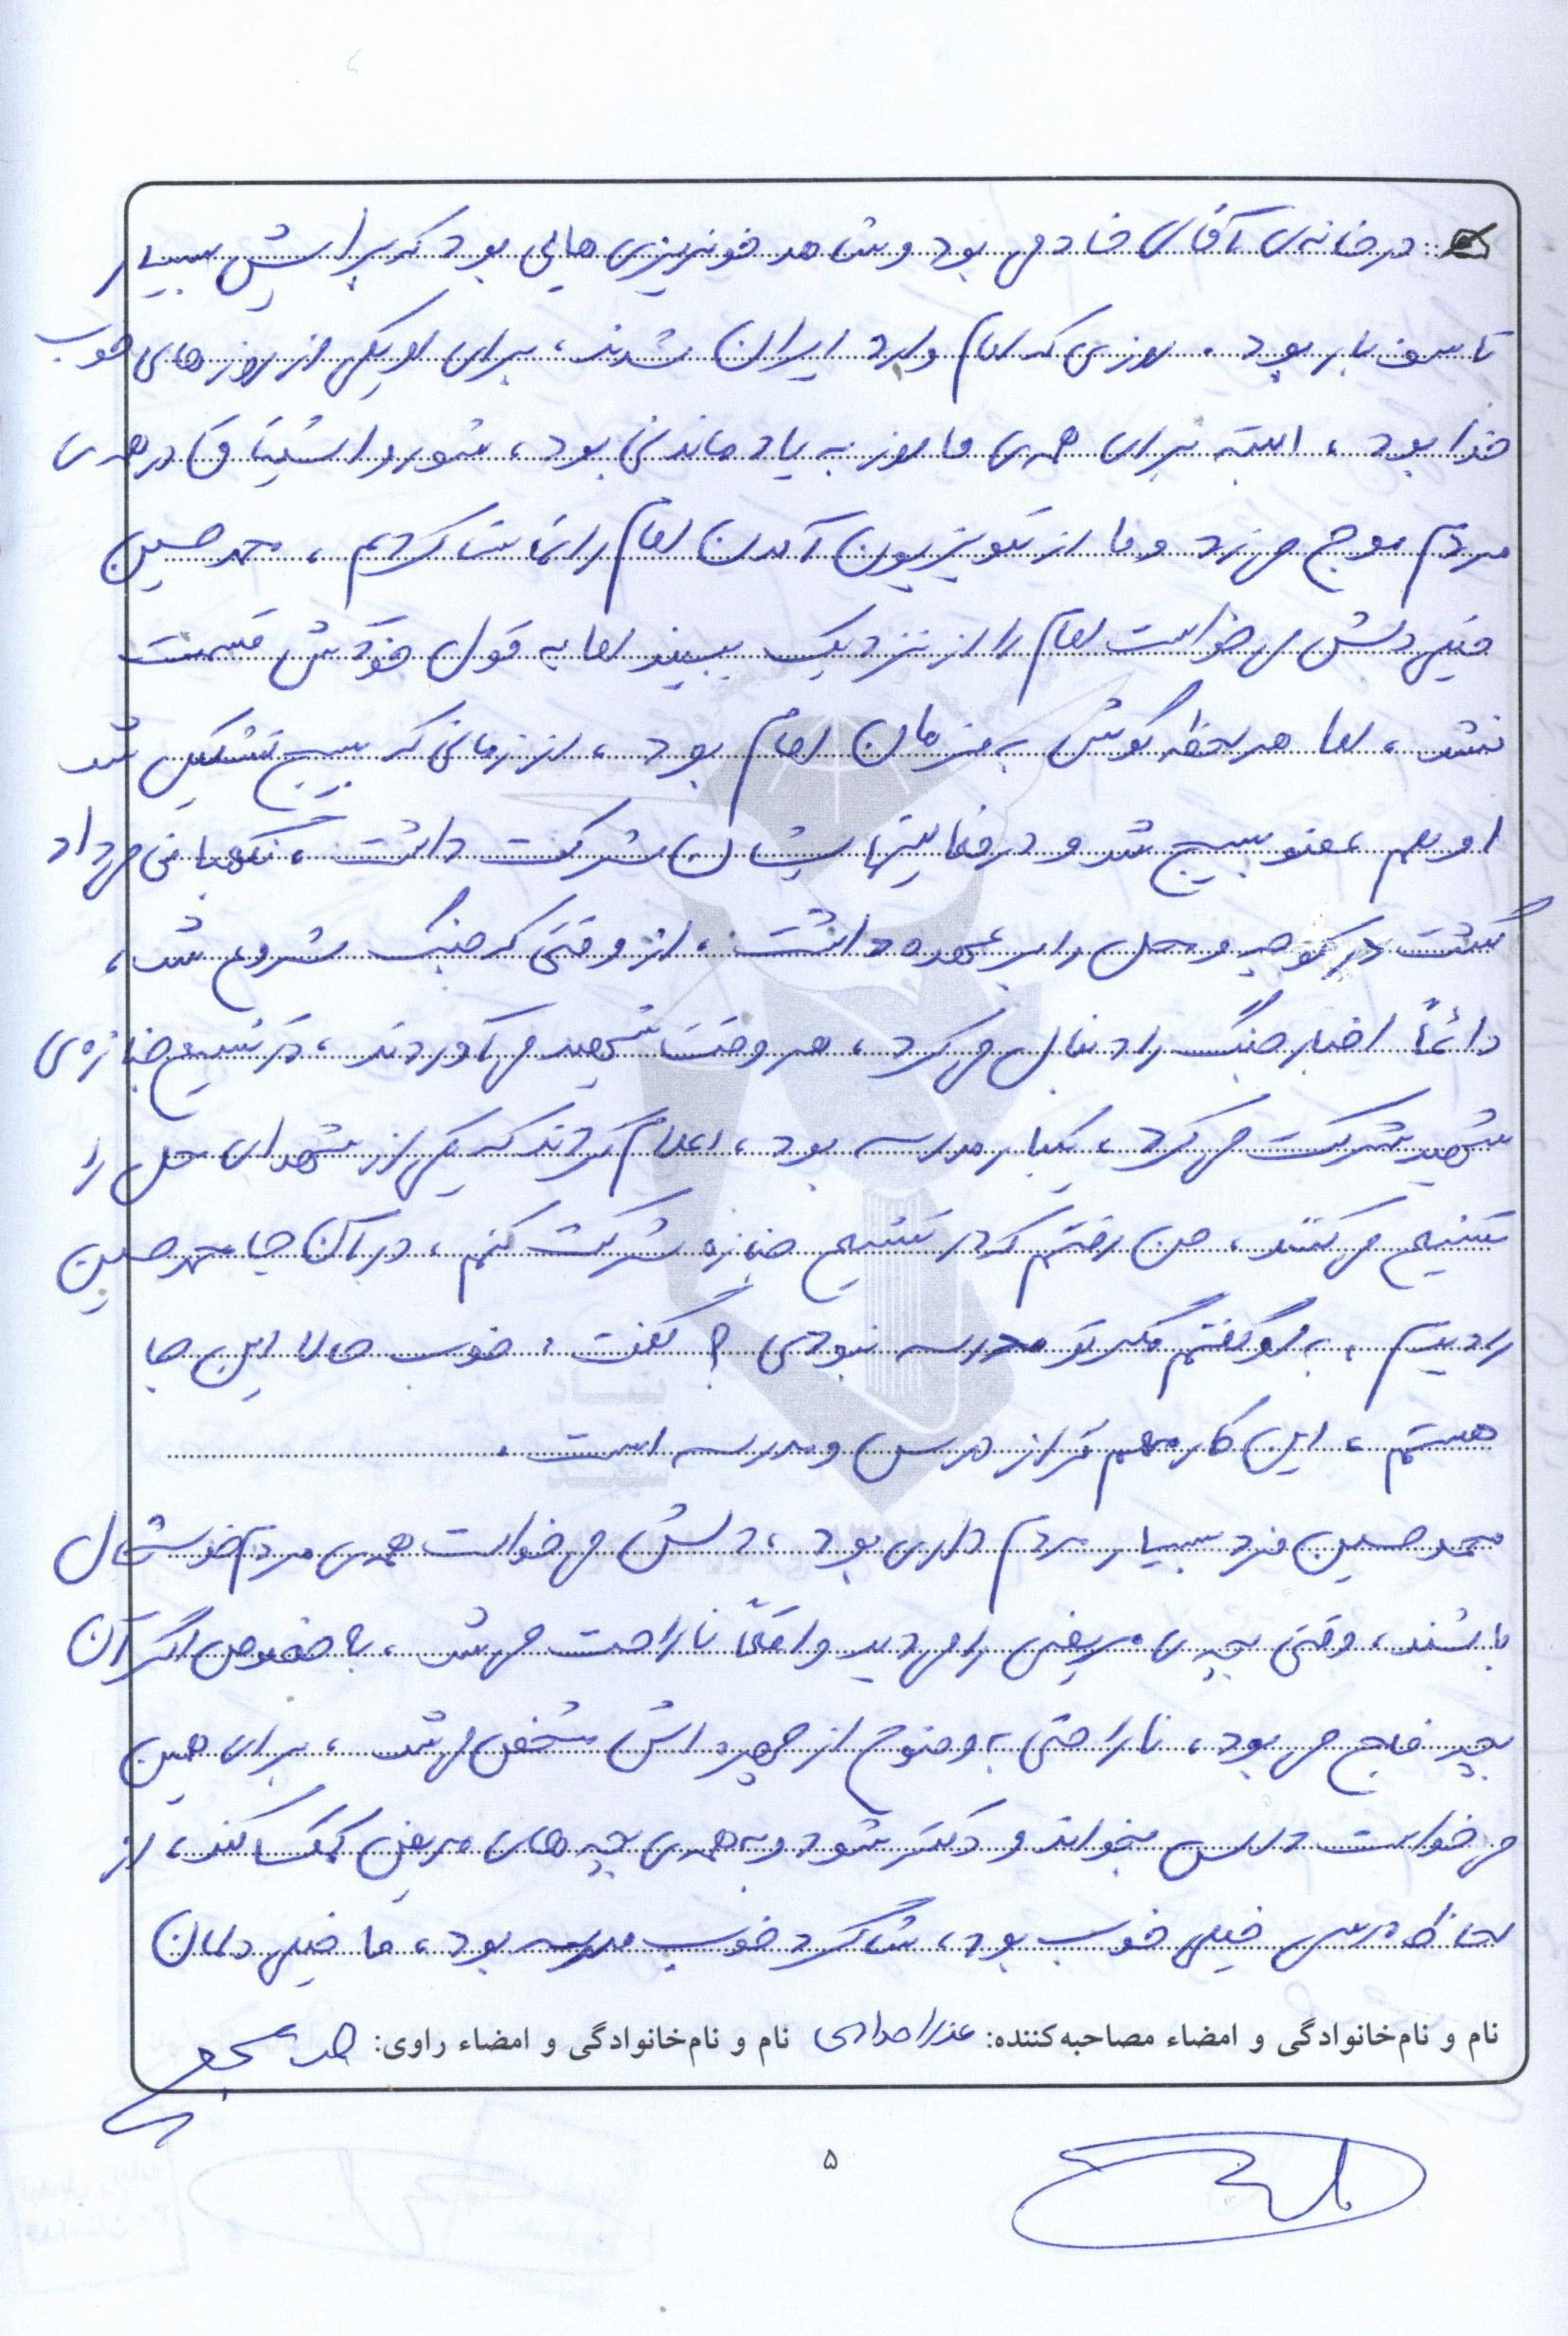 در خانه‌ی آقای خادمی بود و شاهد خونریزی هایی بود که برایش بسیار
تاسف بار بود. روزی که امام وارد ایران شدند، برای او یکی از روزهای خوب
خدا بود، البته برای همه‌ی ما روز به یاد ماندنی بود، شور و اشتیاق در همه‌ی
مردم موج می زد و ما از تلویزیون آمدن امام را تماشا کردیم، محمد حسین
خیلی دلش می خواست امام را از نزدیک ببیند اما به قول خودش قسمت
نشد، اما هر لحظه گوش به فرمان امام بود، از زمانی که بسیج تشکیل شد
او هم عضو بسیج شد و در فعالیتهایشان شرکت داشت، نگهبانی می داد
گشت در کوچه و محل را بر عهده داشت، از وقتی که جنگ شروع شد،
دائماً اخبار جنگ را دنبال می کرد، هر وقت شهید می آوردند، در تشییع جنازه‌ی
شهید شرکت می کرد، یکبار مدرسه بود، اعلام کردند که یکی از شهدای محل را
تشییع می کنند، من رفتم که در تشییع جنازه شرکت کنم، در آن جا محمد حسین
را دیدم، به او گفتم مگر تو مدرسه نبودی؟ گفت، خوب حالا این جا
هستم، این کار مهم تر از درس و مدرسه است.
محمد حسین فرد بسیار مردم داری بود، دلش می خواست همه‌ی مردم خوشحال
باشند، وقتی بچه‌ی مریضی را می دید واقعاً ناراحت می شد، بخصوص اگر آن
بچه فلج می بود، ناراحتی به وضوح از چهره اش مشخص می شد، برای همین
می خواست درس بخواند و دکتر شود و به همه‌ی بچه های مریض کمک کند، از
لحاظ درسی خیلی خوب بود، شاگرد خوب مدرسه بود، ما خیلی دلمان
نام و نام‌خانوادگی و امضاء مصاحبه‌کننده: عذرا مرادی نام و نام‌خانوادگی و امضاء راوی:
۵